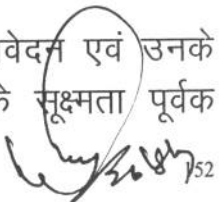 वेदन एवं उनके
के सूक्ष्मता पूर्वक
52